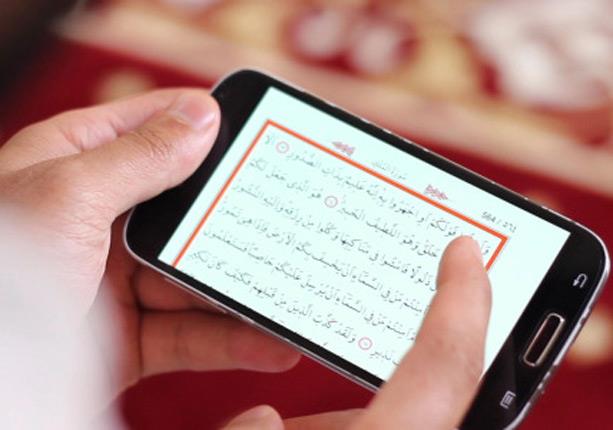 564 /
سورة الملك
قَوْلَكُمْ أَوِ اجْهَرُوا بِهِ إِنَّهُ عَلِيمٌ بِذَاتِ الصُّدُورِ أَلَا
خَلَقَ وَهُوَ اللَّطِيفُ الْخَبِيرُ هُوَ الَّذِي جَعَلَ لَكُمُ
ذَلُولًا فَامْشُوا فِي مَنَاكِبِهَا وَكُلُوا مِن رِّزْقِهِ وَإِلَيْهِ النُّشُورُ
ءَأَمِنتُم مَّن فِي السَّمَاءِ أَن يَخْسِفَ بِكُمُ الْأَرْضَ فَإِذَا هِيَ تَمُورُ
أَمِنتُم مَّن فِي السَّمَاءِ أَن يُرْسِلَ عَلَيْكُمْ حَاصِبًا فَسَتَعْلَمُونَ
نَذِيرِ وَلَقَدْ كَذَّبَ الَّذِينَ مِن قَبْلِهِمْ فَكَيْفَ كَانَ نَكِيرِ